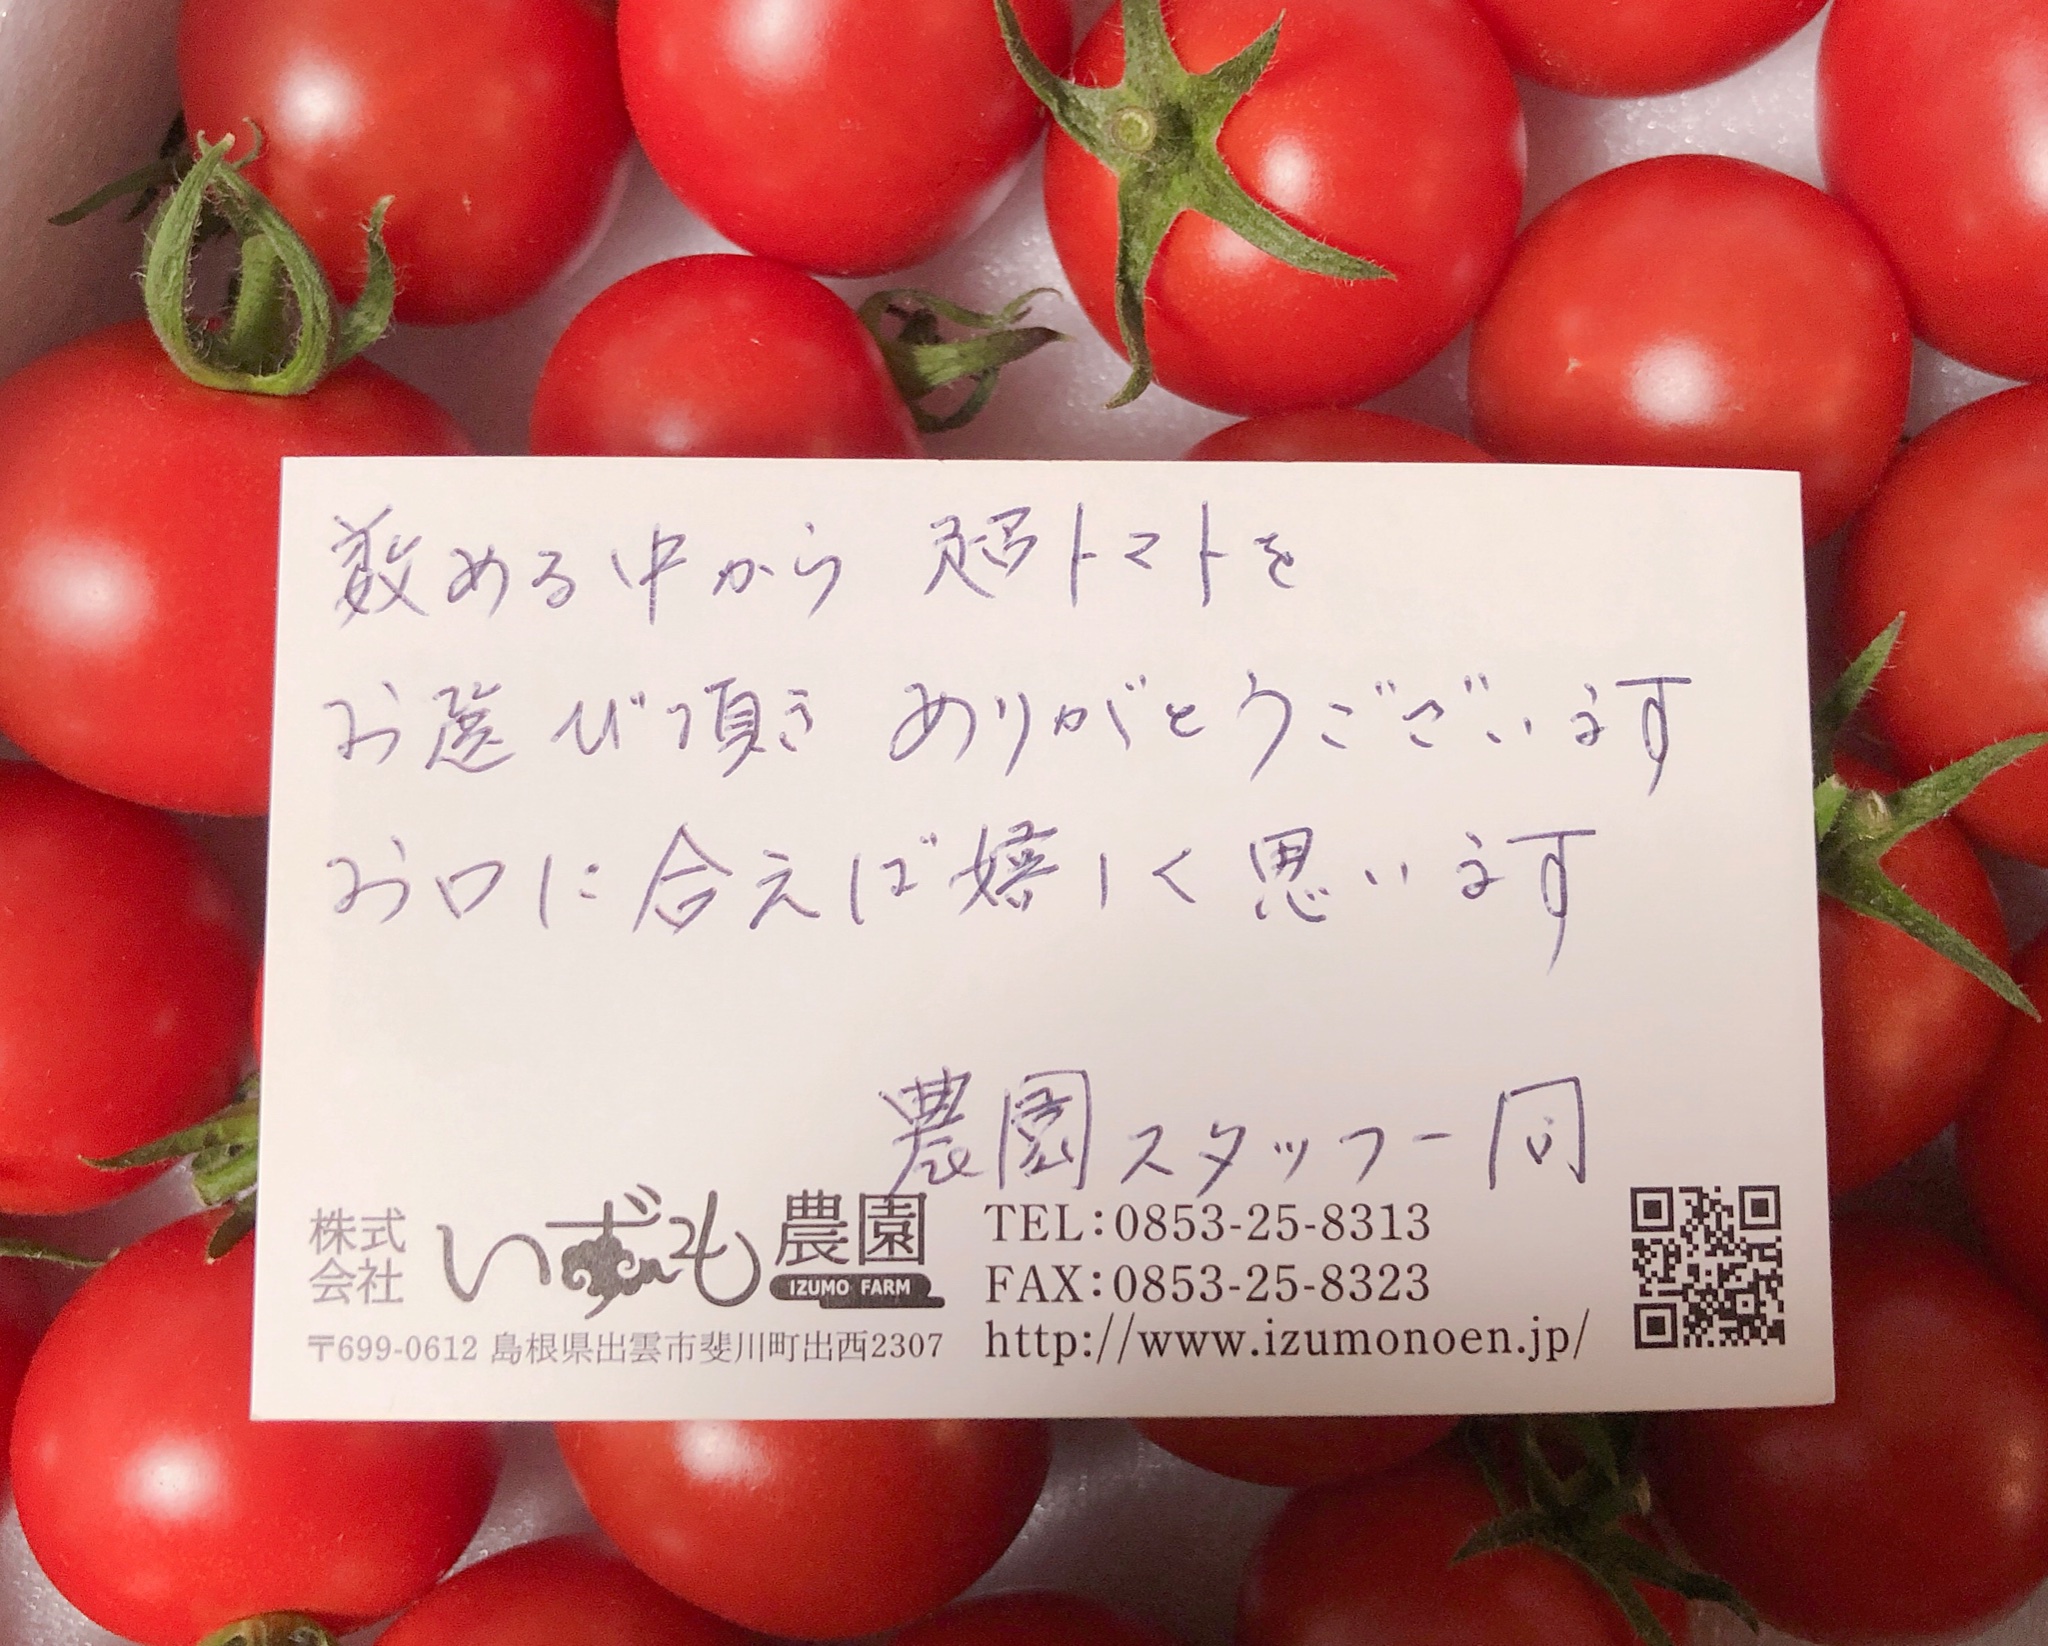 数める中から 超トマトを
お選び頂き ありがとうございます
お口に合えば嬉しく思います
農園スタッフ一同
株式会社 いずも農園
IZUMO FARM
〒699-0612 島根県出雲市斐川町出西2307
TEL：0853-25-8313
FAX：0853-25-8323
http://www.izumonoen.jp/